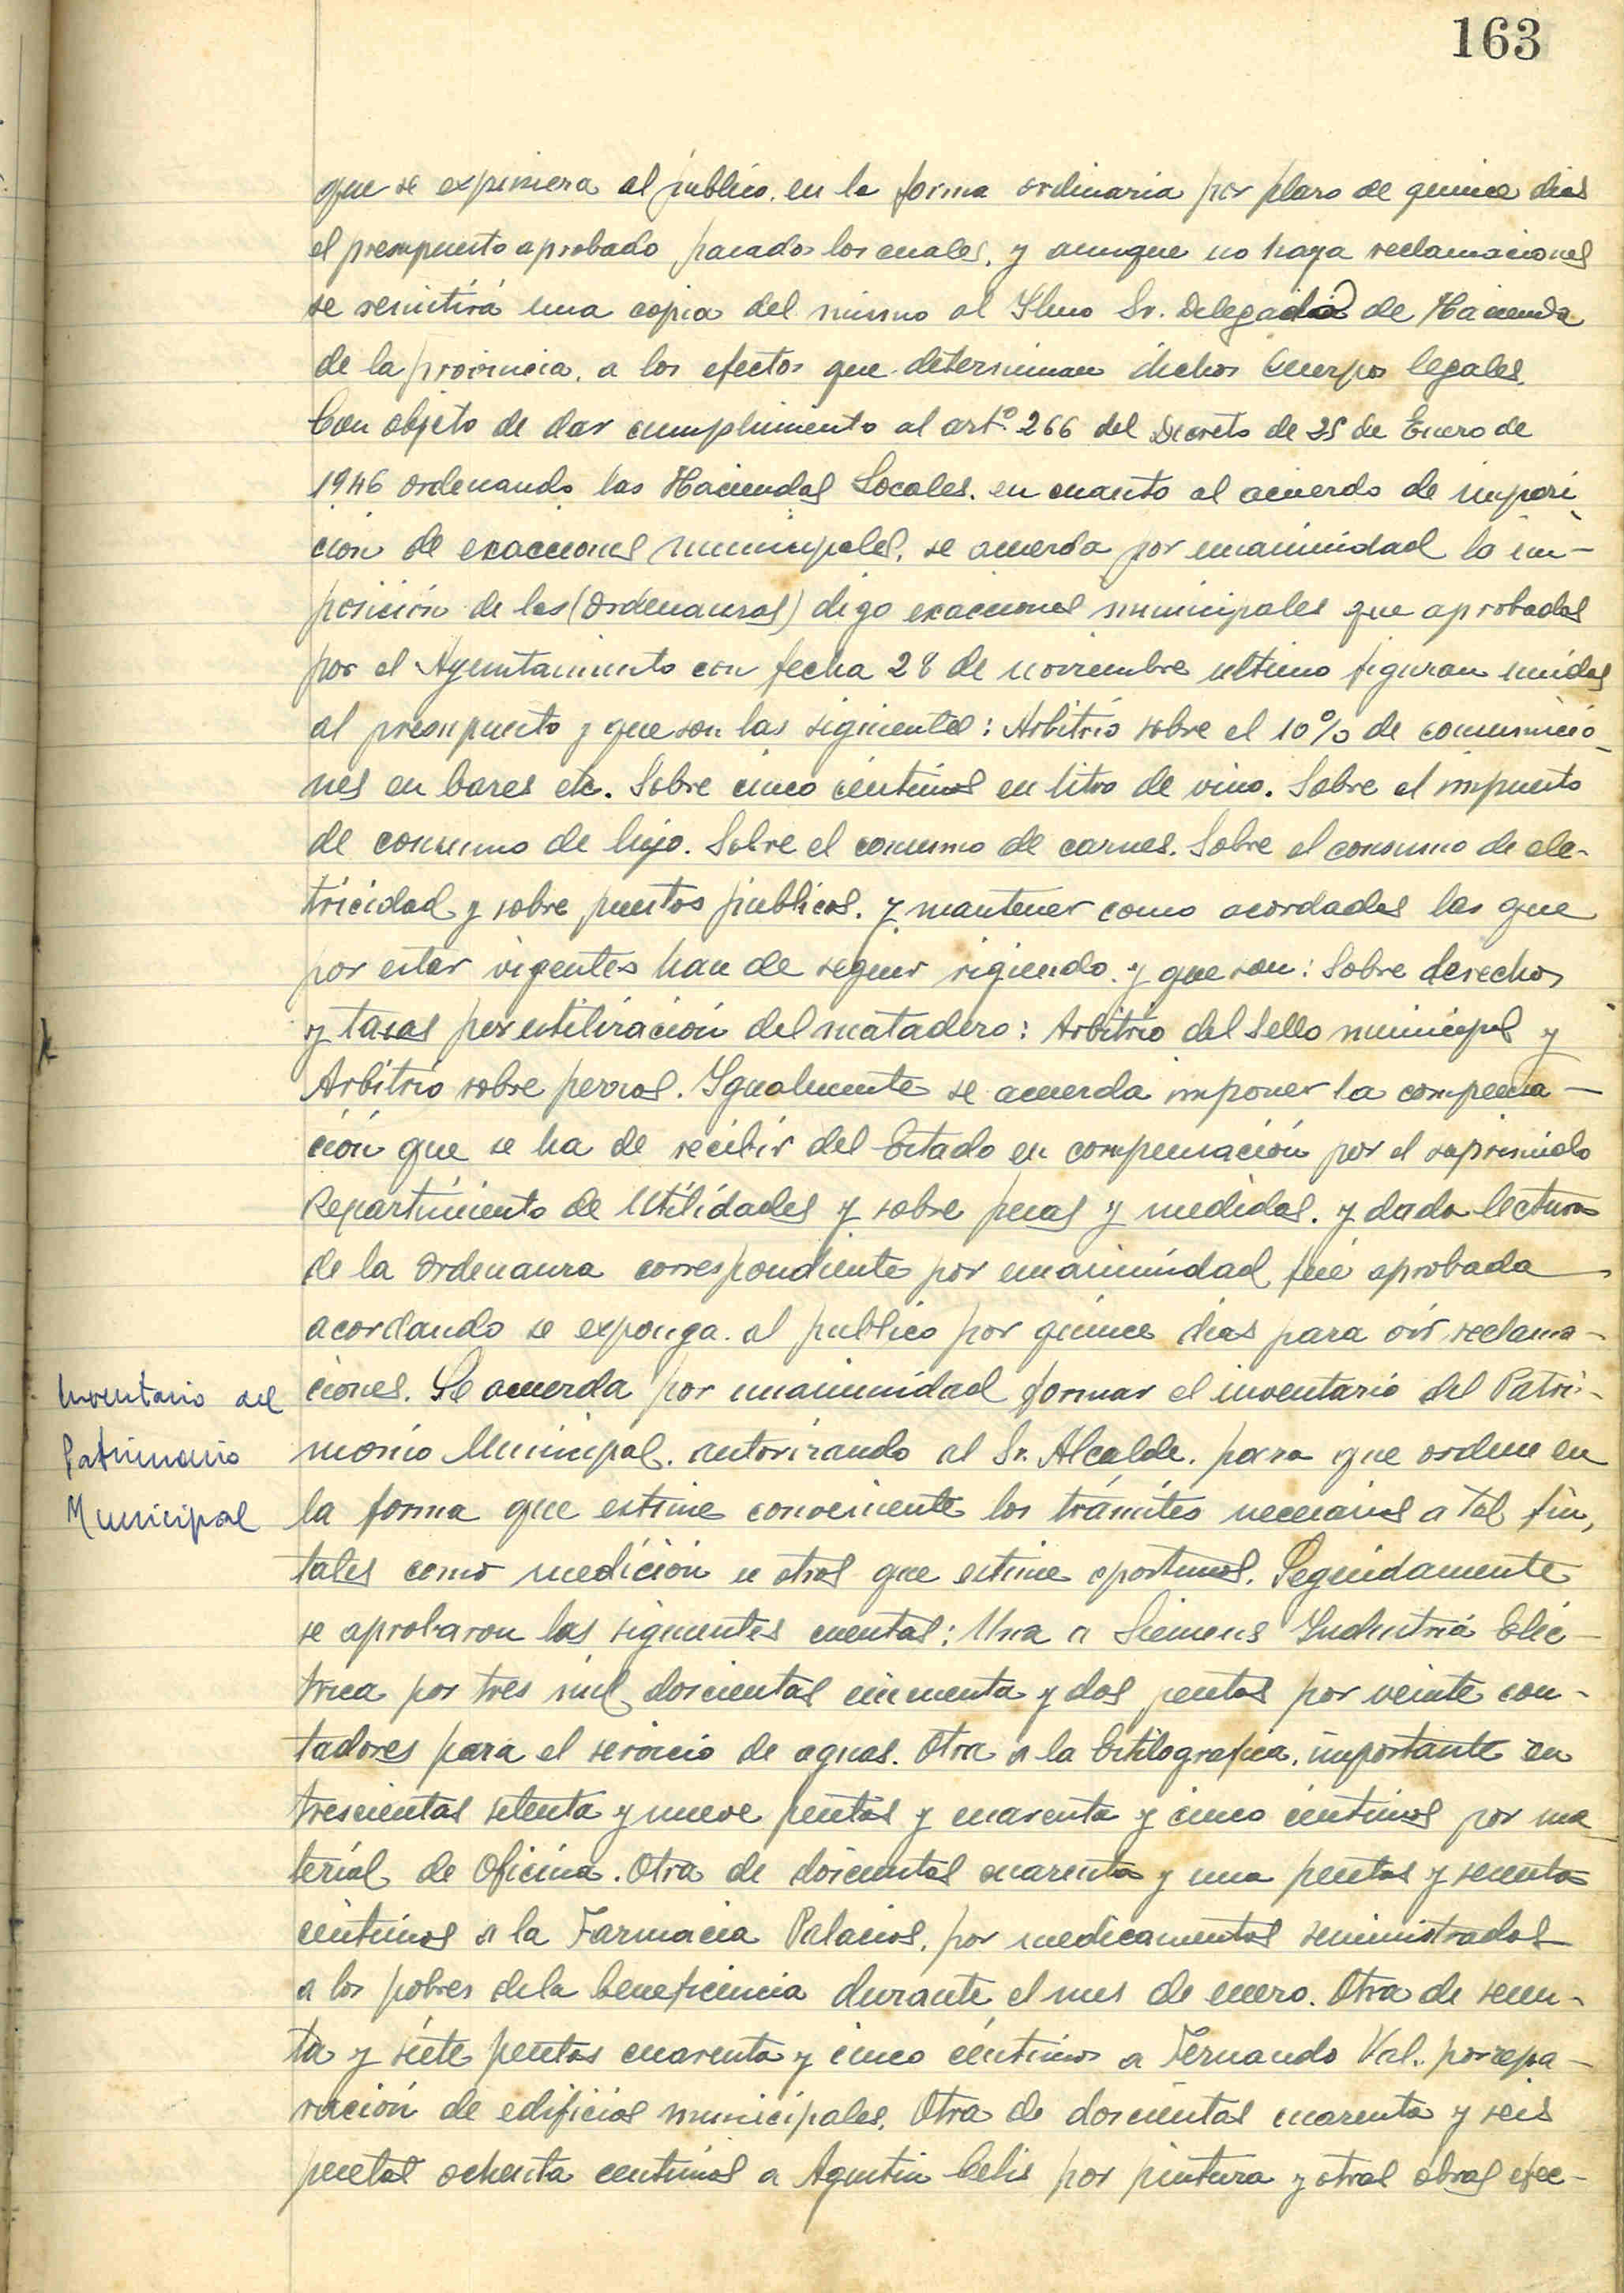 163
que se expusiera al público, en la forma ordinaria por plazo de quince dias
el presupuesto aprobado pasados los cuales, y aunque no haya reclamaciones
se remitirá una copia del mismo al Ylmo Sr. Delegado de Hacienda
de la provincia, a los efectos que determinan dichos Cuerpos legales.
Con objeto de dar cumplimiento al artº 266 del Decreto de 25 de Enero de
1946 ordenando las Haciendas Locales, en cuanto al acuerdo de imposi
ción de exacciones municipales, se acuerda por unanimidad la im-
posición de las (Ordenanzas) digo exacciones municipales que aprobadas
por el Ayuntamiento con fecha 28 de noviembre ultimo figuran unidas
al presupuesto y que son las siguientes: Arbitrio sobre el 10% de consumicio-
nes en bares etc. Sobre cinco céntimos en litro de vino. Sobre el impuesto
de consumo de lujo. Sobre el consumo de carnes. Sobre el consumo de ele-
tricidad y sobre puestos públicos. y mantener como acordadas las que
por estar vigentes han de seguir rigiendo y que son: Sobre derechos
y tasas por utilización del matadero: Arbitrio del Sello municipal y
Arbitrio sobre perros. Ygualmente se acuerda imponer la compensa-
ción que se ha de recibir del Estado en compensación por el suprimido
Repartimiento de Utilidades y sobre pesas y medidas. y dada lectura
de la Ordenanza correspondiente por unanimidad fué aprobada
acordando se exponga al publico por quince dias para oír reclama-
Inventario del
Patrimonio
Municipal
ciones. Se acuerda por unanimidad formar el inventario del Patri-
monio Municipal. autorizando al Sr. Alcalde. para que ordene en
la forma que estime conveniente los trámites necesarios a tal fin,
tales como medición u otros que estime oportunos. Seguidamente
se aprobaron las siguientes cuentas: Una a Siemens Yndustria Eléc-
trica por tres mil doscientas cincuenta y dos pesetas por veinte con-
tadores para el servicio de aguas. Otra a la Estilografica, importante en
trescientas setenta y nueve pesetas y cuarenta y cinco céntimos por ma-
terial de Oficina. Otra de doscientas cuarenta y una pesetas y sesenta
céntimos a la Farmacia Palacios, por medicamentos seministrados
a los pobres dela beneficencia durante el mes de enero. Otra de sesen-
ta y siete pesetas cuarenta y cinco céntimos a Fernando Val. por repa-
ración de edificios municipales. Otra de doscientas cuarenta y seis
pesetas ochenta centimos a Agustin Celis por pintura y otras obras efec-